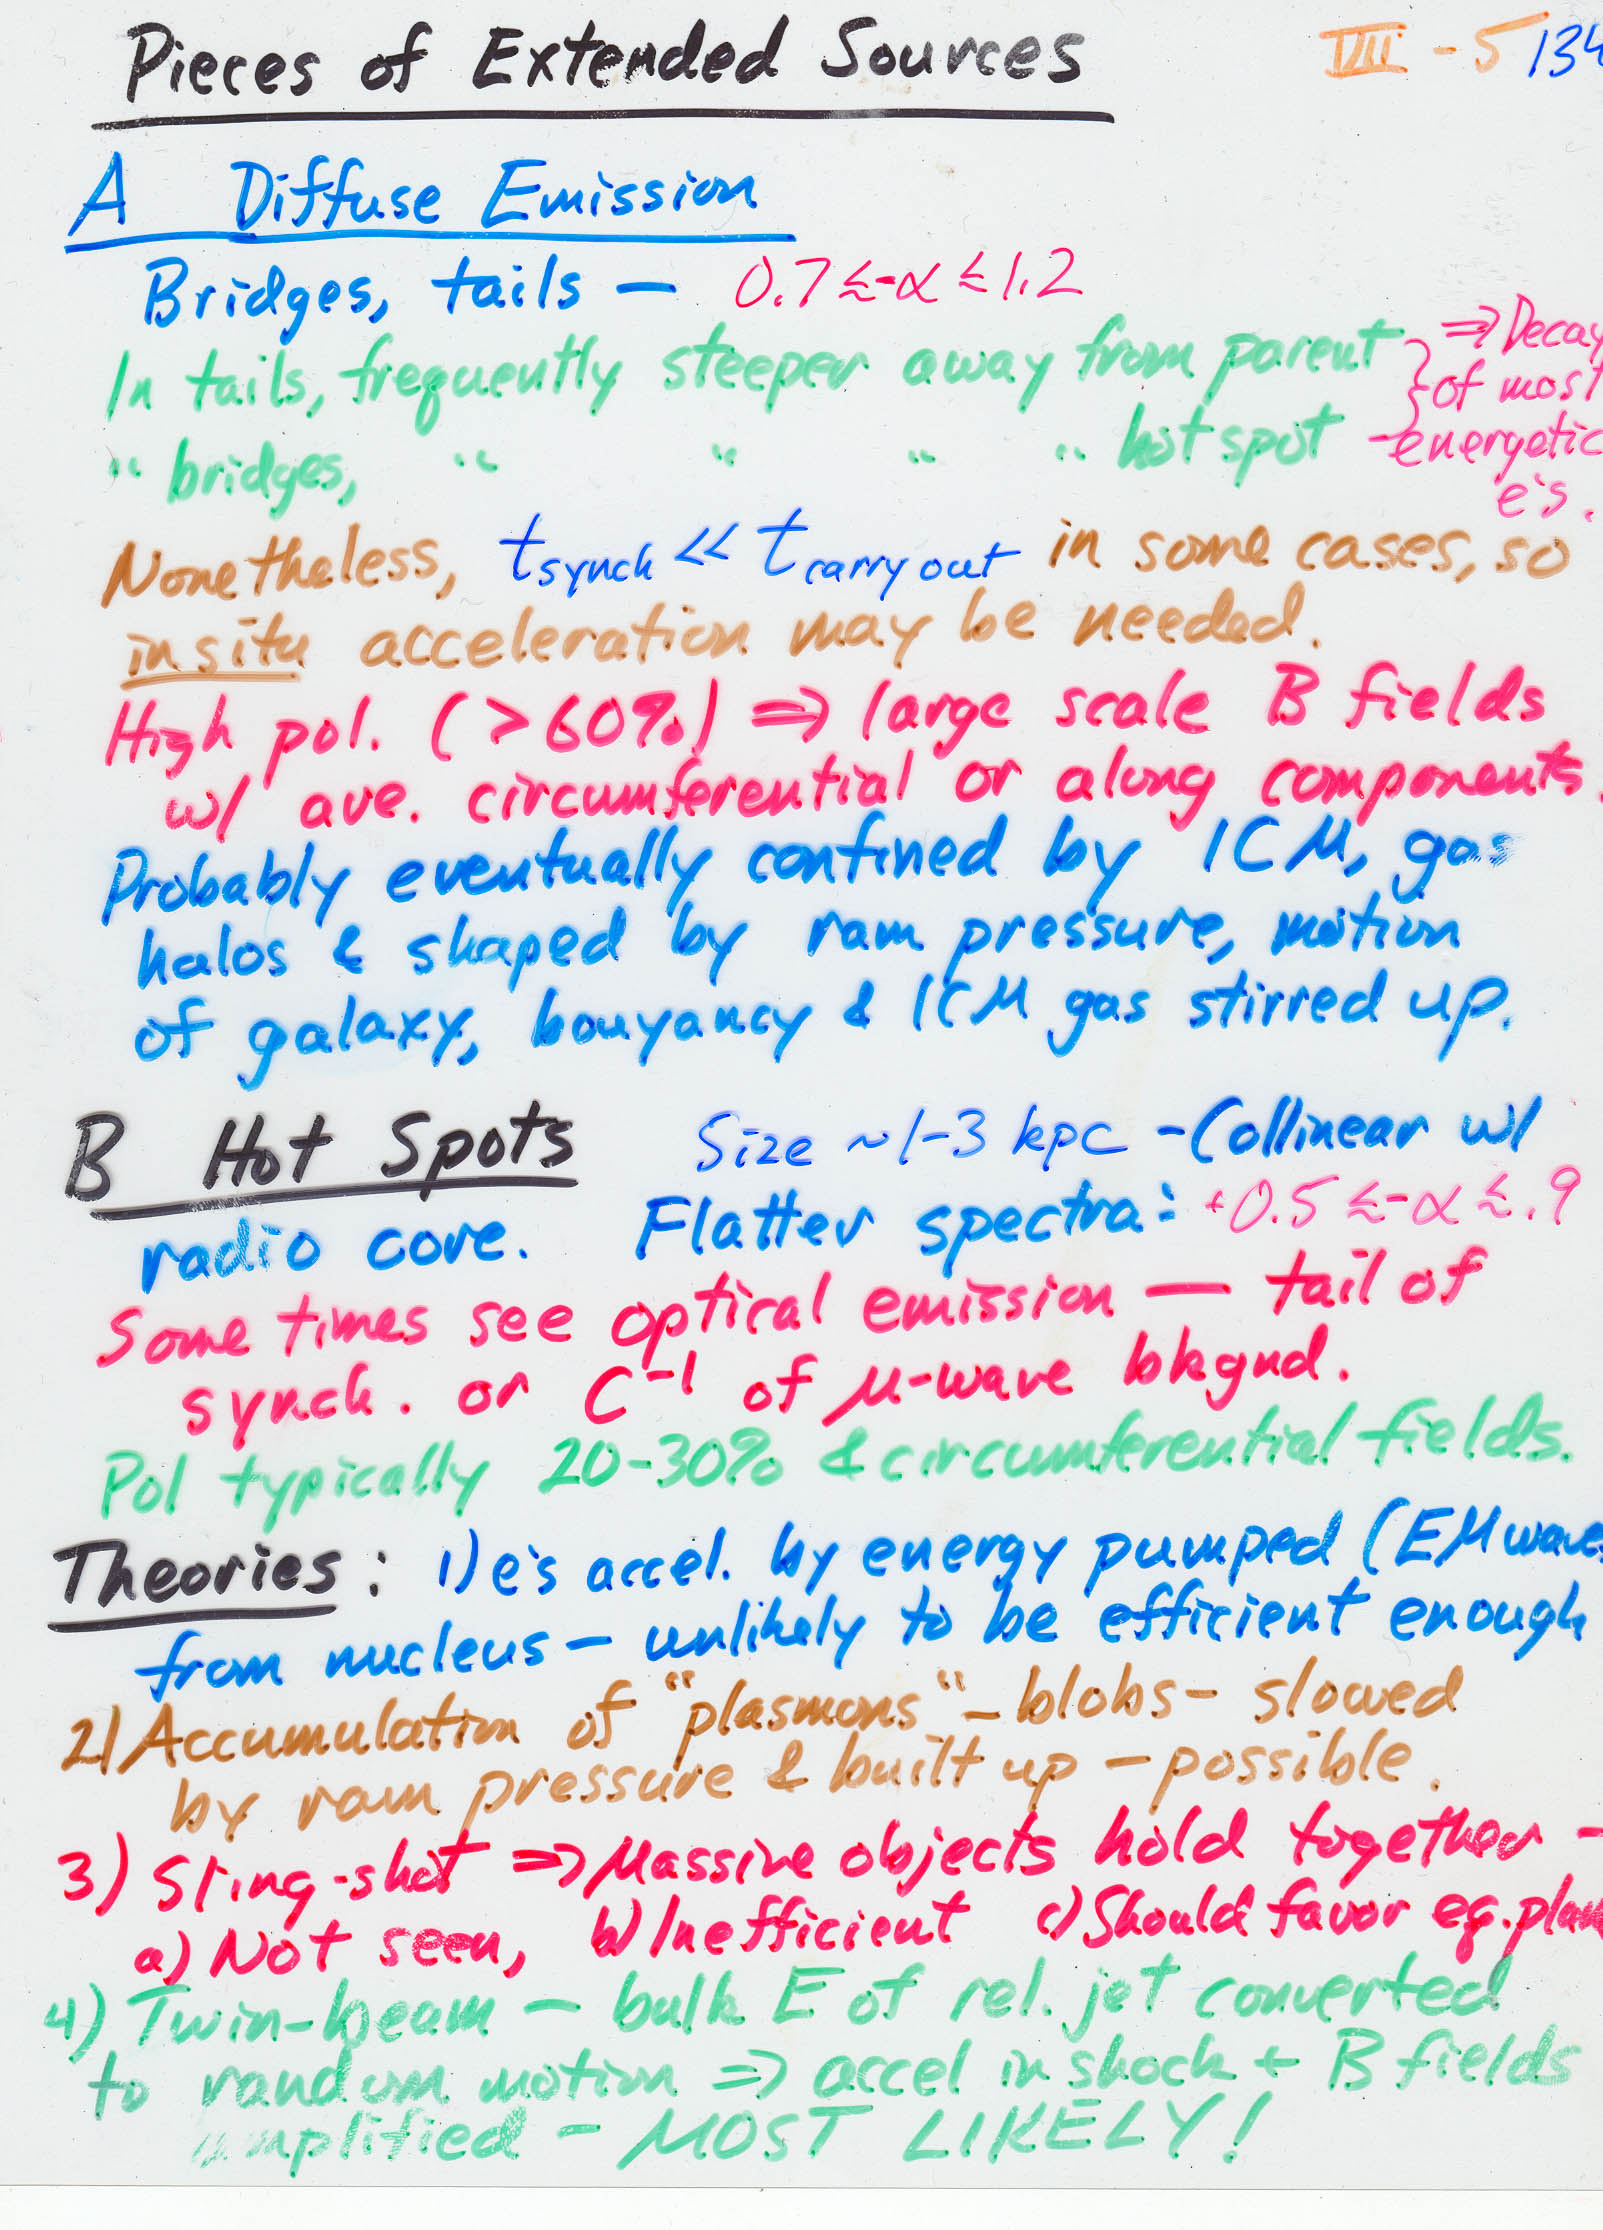 Pieces of Extended Sources VII - 5 134
A Diffuse Emission
Bridges, tails — 0.7 ≲ -α ≲ 1.2
In tails, frequently steeper away from parent } ⇒ Decay
of most
" bridges, " " " " hot spot energetic
e's.
Nonetheless, t synch << t carry out in some cases, so
in situ acceleration may be needed.
High pol. (>60%) ⇒ large scale B fields
w/ ave. circumferential or along components.
Probably eventually confined by ICM, gas
halos & shaped by ram pressure, motion
of galaxy, bouyancy & ICM gas stirred up.
B Hot Spots Size ~1-3 kpc - Collinear w/
radio core. Flatter spectra: +0.5 ≲ -α ≲ .9
Some times see optical emission — tail of
synch. or C⁻¹ of μ-wave bkgnd.
Pol typically 20-30% & circumferential fields.
Theories: 1) e's accel. by energy pumped (EM waves
from nucleus — unlikely to be efficient enough
2) Accumulation of "plasmons" - blobs - slowed
by ram pressure & built up - possible.
3) Sling-shot ⇒ Massive objects hold together -
a) Not seen, b) Inefficient c) Should favor eq. plan
4) Twin-beam — bulk E of rel. jet converted
to random motion ⇒ accel in shock + B fields
amplified - MOST LIKELY!